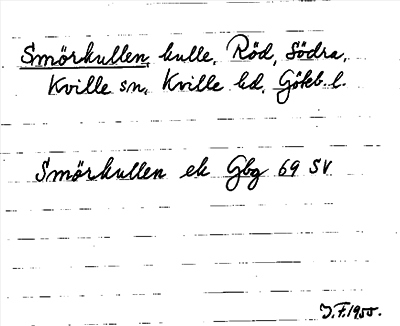 Smörkullen, kulle, Röd, Södra,
Kville sn, Kville hd, Göteb. l.
Smörkullen ek Gbg 69 SV
J. F. 1955.